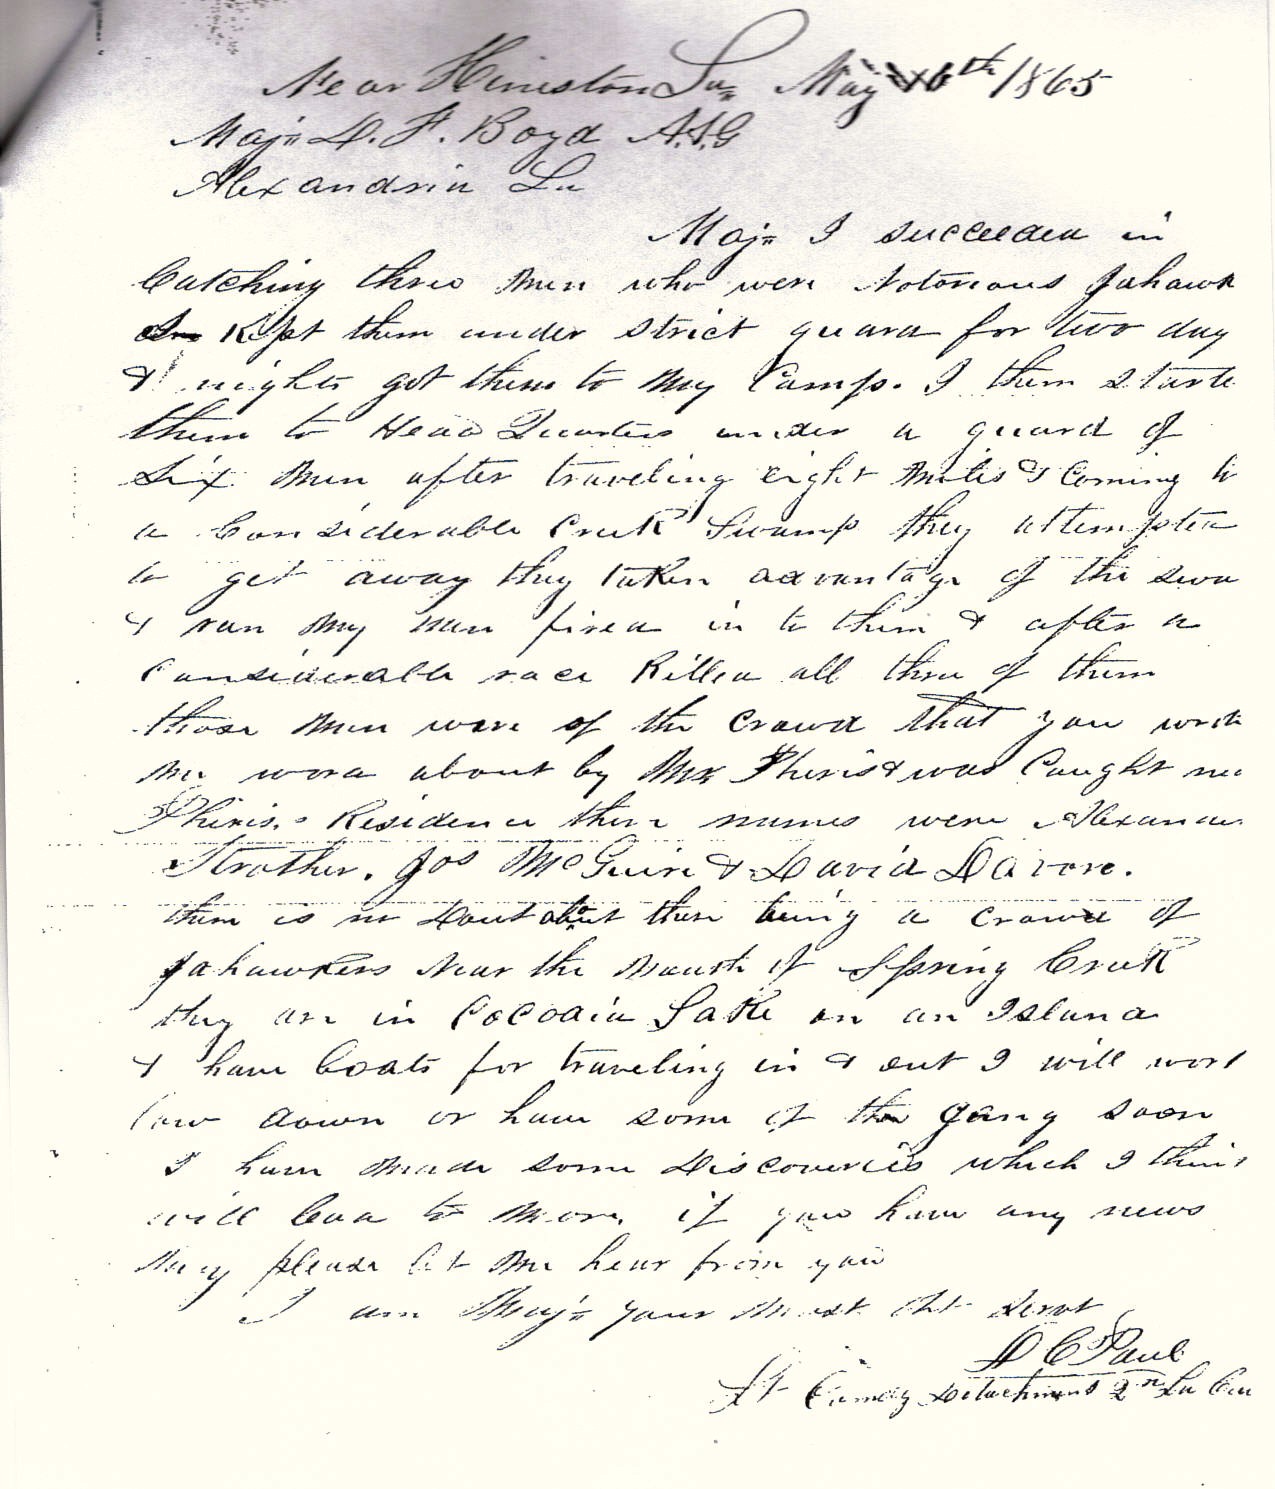 Near Hineston La= May 6th 1865
Maj= D. F. Boyd A.A.G
Alexandria La
Maj= I succeeded in
Catching three men who were Notorious Jahawk
Kept them under strict guard for two day
& nights got them to my Camp. I them starte
them to Head Quarters under a guard of
Six men after traveling eight miles & Coming to
a Considerable Creek Swamp they attempted
to get away they taken advantage of the swa
& ran my men fired in to them & after a
Considerable race Killed all three of them
those men were of the Crowd that you wrote
me word about by Mr Pheris & was Caught nea
Pheris. Residence there names were Alexander
Strother. Jos McGuire & David Davore.
there is no Dout about there being a crowd of
Jahawkers Near the mouth of Spring Creek
they are in Cocodia Lake on an Island
& have boats for traveling in & out I will
down or have some of the gang soon
I have made some Discoveries which I think
will lead to more. if you have any news
Maj please let me hear from you
I am Maj= your most Obt Servt
D C Paul
Lt Comdg Detachment 2nd La Cav